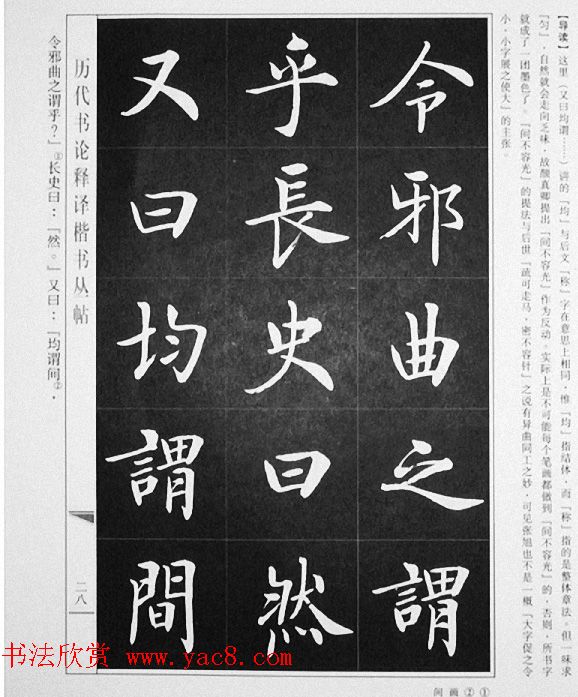 【导读】这里（又曰均谓……）讲的「均」与后文「称」字在意思上相同，惟「均」指结体，而「称」指的是整体章法。但一味求
「匀」，自然就会走向乏味，故颜真卿提出「间不容光」作为反动，实际上是不可能每个笔画都做到「间不容光」的，否则，所书字
就成了一团墨色了。「间不容光」的提法与后世「疏可走马，密不容针」之说有异曲同工之妙，可见张旭也不是一概「大字促之令
小，小字展之使大」的主张。
令邪曲之謂
乎長史曰然
又曰均謂間
历代书论释译楷书丛帖
二八
令邪曲之谓乎？」②长史曰：「然。」又曰：「均谓间②，
书法欣赏 www.yac8.com